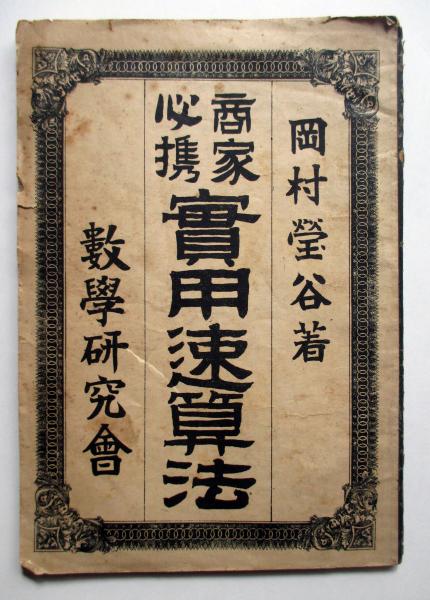 岡村瑩谷著
商家
必携
實用速算法
數學研究會